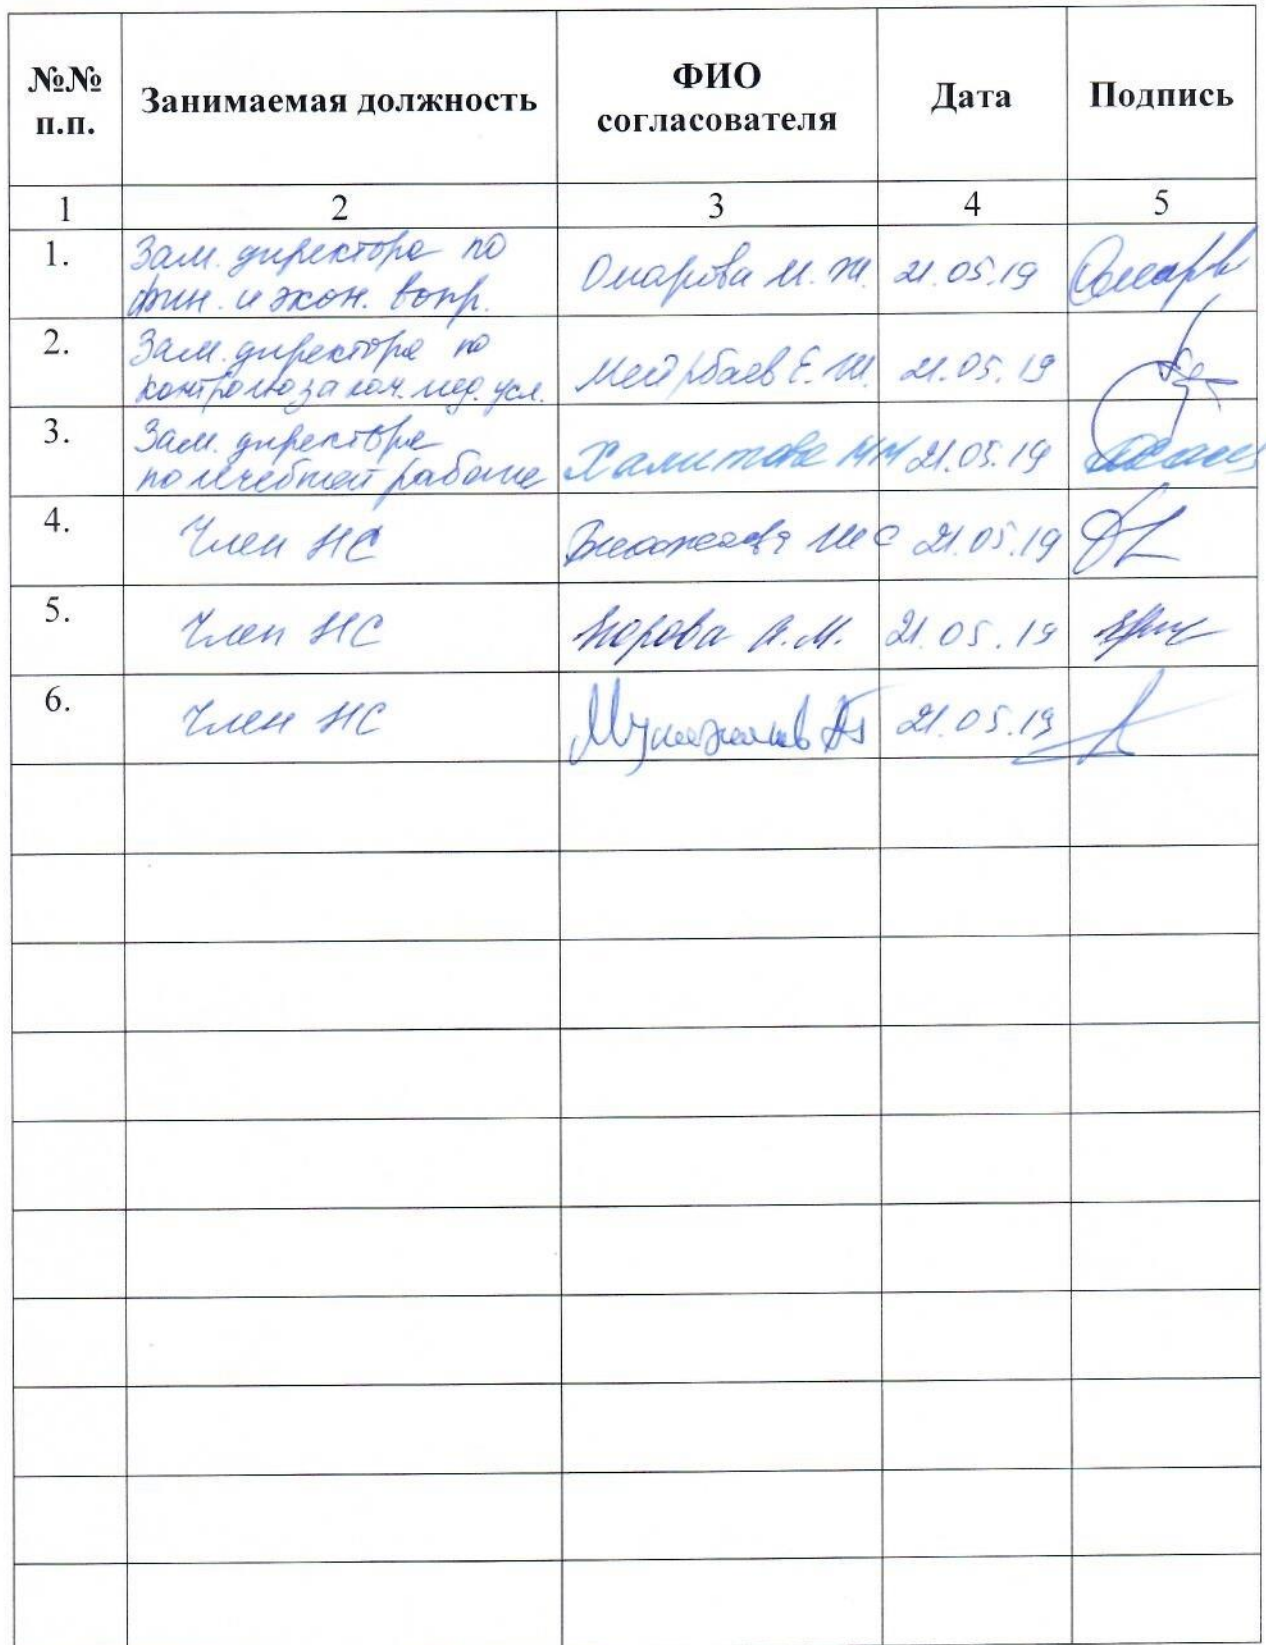 №№ п.п.
Занимаемая должность
ФИО согласователя
Дата
Подпись
1 2 3 4 5
1. Зам. директора по фин. и экон. вопр. Омарова М. Ж. 21.05.19
2. Зам. директора по контролю за кач. мед. усл. Мейрбаев Е. Ш. 21.05.19
3. Зам. директора по лечебной работе Халитова ММ 21.05.19
4. Член НС 21.05.19
5. Член НС А.М. 21.05.19
6. Член НС 21.05.19